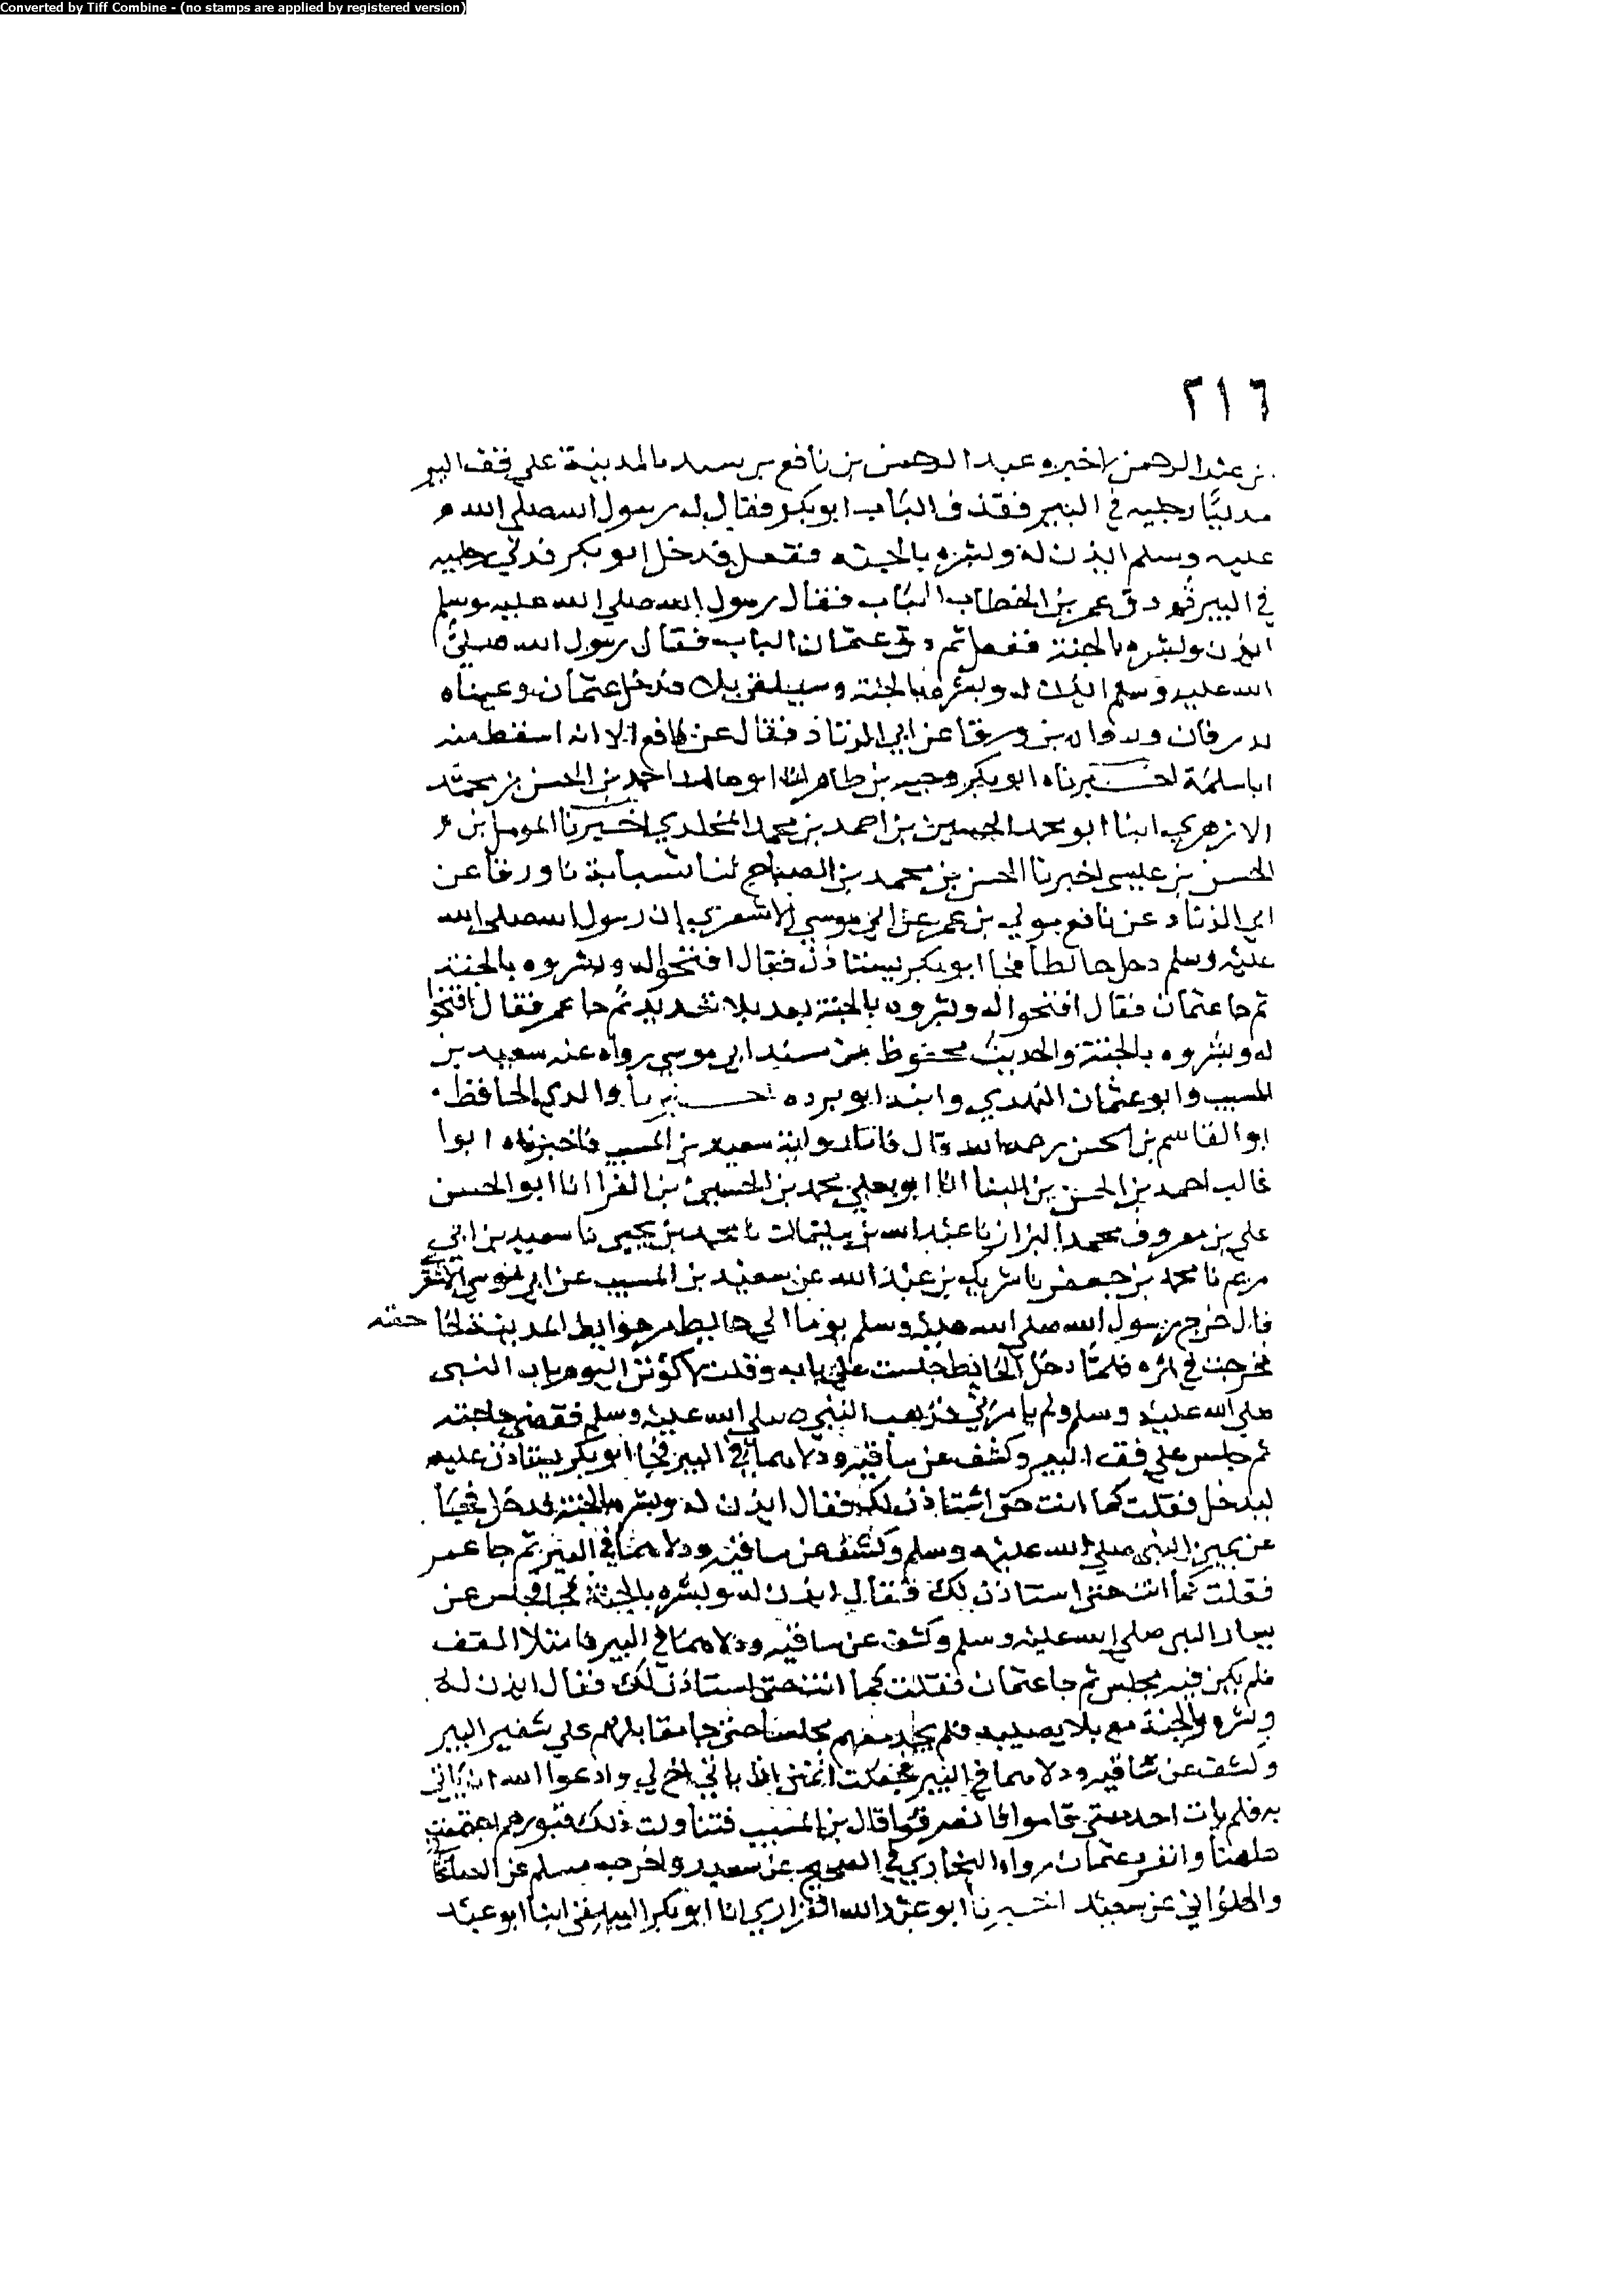 Converted by Tiff Combine - (no stamps are applied by registered version)
٢١٦
بن عبد الرحمن اخبره عبد الرحمن بن نافع بالمدينة على قف البير
مدليا رجليه في البير فدق الباب ابو بكر فقال له رسول الله صلى الله
عليه وسلم ايذن له وبشره بالجنة ففعل فدخل ابو بكر فدلي رجليه
في البير ثم دق عمر بن الخطاب الباب فقال رسول الله صلى الله عليه وسلم
ايذن وبشره بالجنة ففعل ثم دق عثمان الباب فقال رسول الله صلى
الله عليه وسلم ايذن له وبشره بالجنة وسيلقى بلا فدخل عثمان وعيناه
بن ورقا عن ابي الزناد فقال عن نافع الا انه اسقط منه
ابا سلمة اخبرناه ابو بكر وجيه بن طاهر انا ابو حامد احمد بن الحسن بن محمد
الازهري ابنا ابو محمد الحسين بن احمد بن محمد المخلدي اخبرنا المومل بن
الحسن بن عيسى اخبرنا الحسن بن محمد بن الصباح ثنا شبابة نا ورقا عن
ابي الزناد عن نافع مولي بن عمر عن ابي موسي الاشعري ان رسول الله صلى الله
عليه وسلم دخل حائطا فجا ابو بكر يستاذن فقال افتحوا له وبشروه بالجنة
ثم جا عثمان فقال افتحوا له وبشروه بالجنة بعد بلا شديد ثم جا عمر فقال افتحوا
له وبشروه بالجنة والحديث محفوظ من مسند ابي موسي رواه عنه سعيد بن
المسيب وابو عثمان النهدي وابنه ابو برده اخبرنا والدي الحافظ
ابو القاسم بن الحسن رحمه الله قال فاما رواية سعيد بن المسيب فاخبرناه ابوا
غالب احمد بن الحسن بن البنا انا ابو يعلي محمد بن الحسين بن الفرا انا ابو الحسن
علي بن معروف محمد البزاز نا عبد الله بن سليمان نا محمد بن يحيى نا سعيد بن ابي
مريم نا محمد بن جعفر نا شريك بن عبد الله عن سعيد بن المسيب عن ابي موسي الاشعري
قال خرج رسول الله صلى الله عليه وسلم يوما الي حايط من حوايط المدينة لحاجته
فخرجت في اثره فلما دخل الحايط جلست على بابه وقلت لاكونن اليوم باب النبي
صلى الله عليه وسلم ولم يامرني فذهب النبي صلى الله عليه وسلم فقضى حاجته
ثم جلس علي قف البير وكشف عن ساقيه ودلاهما في البير فجا ابو بكر يستاذن عليه
ليدخل فقلت كما انت حتى استاذن لك فقال ايذن له وبشره بالجنة فدخل فجا
عن يمين النبي صلى الله عليه وسلم وكشف عن ساقيه ودلاهما في البير ثم جا عمر
فقلت كما انت حتى استاذن لك فقال ايذن له وبشره بالجنة فجا فجلس عن
يسار النبي صلى الله عليه وسلم وكشف عن ساقيه ودلاهما في البير فامتلا القف
فلم يكن فيه مجلس ثم جا عثمان فقلت كما انت حتى استاذن لك فقال ايذن له
وبشره بالجنة مع بلا يصيبه فلم يجد معهم مجلسا حتى جا مقابلهم علي شفير البير
وكشف عن ساقيه ودلاهما في البير فجعلت اتمنى ان ياتي اخ لي وادعوا الله ان ياتي
به فلم يات احد حتى قاموا فانصرفوا قال بن المسيب فتناولت ذلك قبورهم اجتمعت
هاهنا وانفرد عثمان رواه البخاري في الصحيح عن سعيد واخرجه مسلم عن
والحلواني عن سعيد اخبرنا ابو عبد الله الفزاري انا ابو بكر البيهقي ابنا ابو عبد